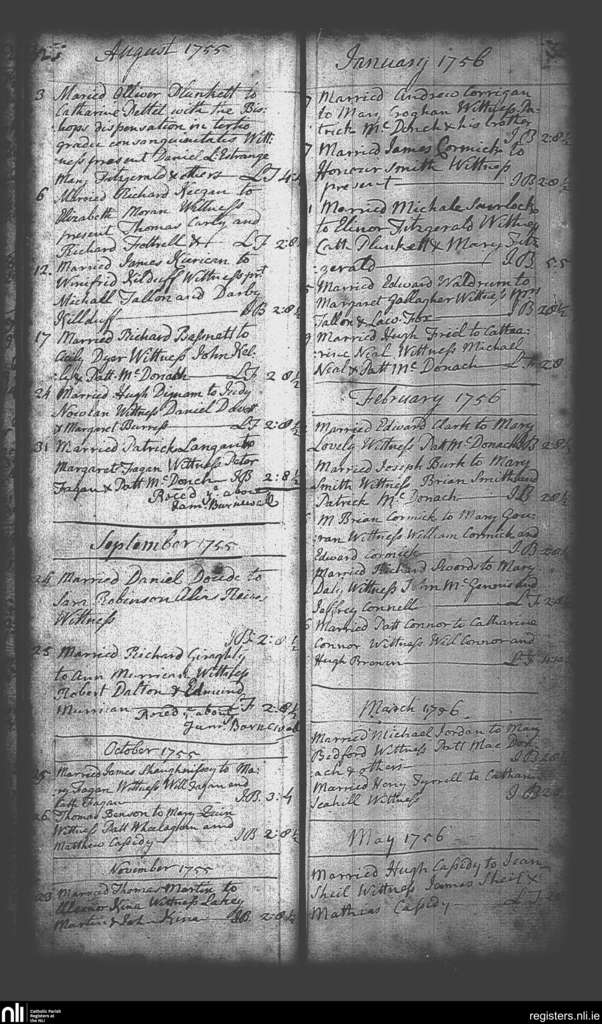 August 1755
3 Maried Olliver Plunkett to
Catharine Tettel with the Bis-
hops dispensation in tertio
gradu consanguinitatis Witt-
ness present Daniel L'Estrange
Mary Fitzgerald & others L F 4
6 Married Richard Keegan to
Elizabeth Moran Wittness
present Thomas Carty and
Richard L F 2:8
12 Married James to
Winefrid Kilduff Wittness prt
Michall Fallon and Darby
Killduff JB 2:8½
17 Married Richard Basnets to
Cicily Dyer Wittness John Kel-
& Patt McDonach L F 2 8½
24 Married Hugh Dignam to Judy
Nowlan Wittness Daniel
& Margaret L F 2:8½
31 Married Patrick Langan to
Margaret Fagan Wittness Peter
Fagan & Patt McDonch JB 2:8½
Reced ye above
Jam Barnewall
September 1755
24 Married Daniel to
Sara Robenson Alias
Wittness
JB 2:8½
25 Married Richard Giraghty
to Ann Murrican Wittness
Robert Dalton & Edmund
Murrican L F 2:8½
Reced ye above
Jam Barnewall
October 1755
25 Married James Shaughnissy to Ma-
ry Fagan Wittness Will Fagan and
Fagan JB 3:4
26 Thomas Benson to Mary Quin
Wittness Patt Whelaghan and
Matthew Cassidy JB 2:8½
November 1755
23 Married Thomas Martin to
Kina Wittness
Martin & Kina JB 2:8½
January 1756
Married Andrew Corrigan
to Mary Croghan Wittness Pa-
trick McDonch & his brother
JB 2:8½
7 Married James Cormick to
Honour Smith Wittness
present JB 2 8½
Married Michale Saurlock
to Elinor Fitzgerald Wittness
Cath Plunkett & Mary Fitz-
gerald JB 5:5
Married Edward Waldrum to
Margaret Gallagher Wittness
Fallon & JB 2 8½
Married Hugh Friel to Catha-
rine Nial Wittness Michael
Nial & Patt McDonach L F 2 8
February 1756
Married Edward Clark to Mary
Lovely Wittness Patt McDonach JB 2:8½
Married Joseph Burk to Mary
Smith Wittness Brian Smith and
Patrick McDonach JB 2:8½
M Brian Cormick to Mary Gou-
ran Wittness William Cormick and
Edward Cormick JB 2:8½
Married Richard Swords to Mary
Daly Wittness John McGennis and
Jeffrey Connell L F 2:8½
Married Patt Connor to Catharine
Connor Wittness Will Connor and
Hugh Branin L F
March 1756
Married Michael Jordan to Mary
Bedford Wittness Patt Mac Don-
ach & others JB 2 8½
Married Henry Tyrrell to Catharine
Scahill Wittness JB 2 8
May 1756
Married Hugh Cassidy to Jean
Sheil Wittness James Sheil &
Mathias Cassidy L F
nli
Catholic Parish
Registers at
the NLI
registers.nli.ie